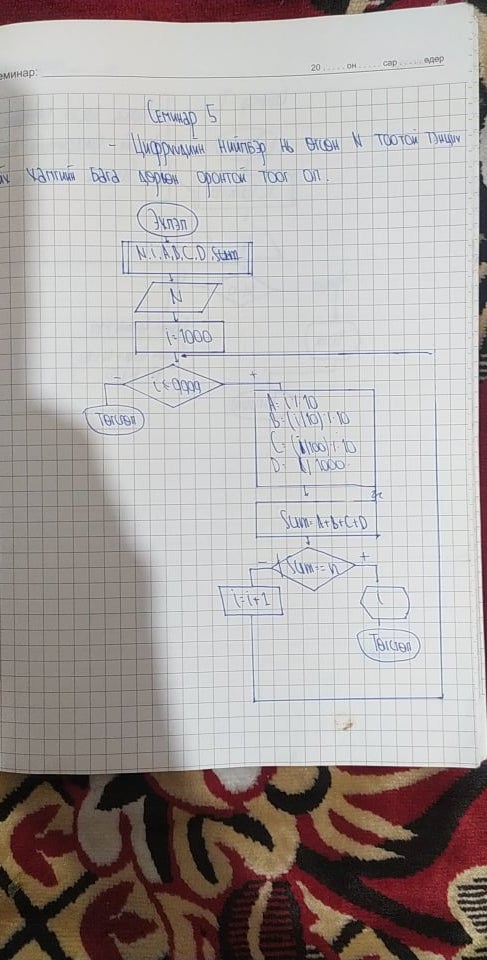 еминар:
20 ..... он ..... сар ..... өдөр
Семинар 5
- Цифрүүдийн нийлбэр нь өгсөн N тоотой тэнцүү
хамгийн бага дөрвөн оронтой тоог ол.
Эхлэл
N, i, A, B, C, D, Sum
N
i=1000
i ≤ 9999
-
+
Төгсгөл
A= i % 10
B= (i/10) % 10
C= (i/100) % 10
D= i/1000
Sum= A+B+C+D
Sum==n
-
+
i=i+1
i
Төгсгөл